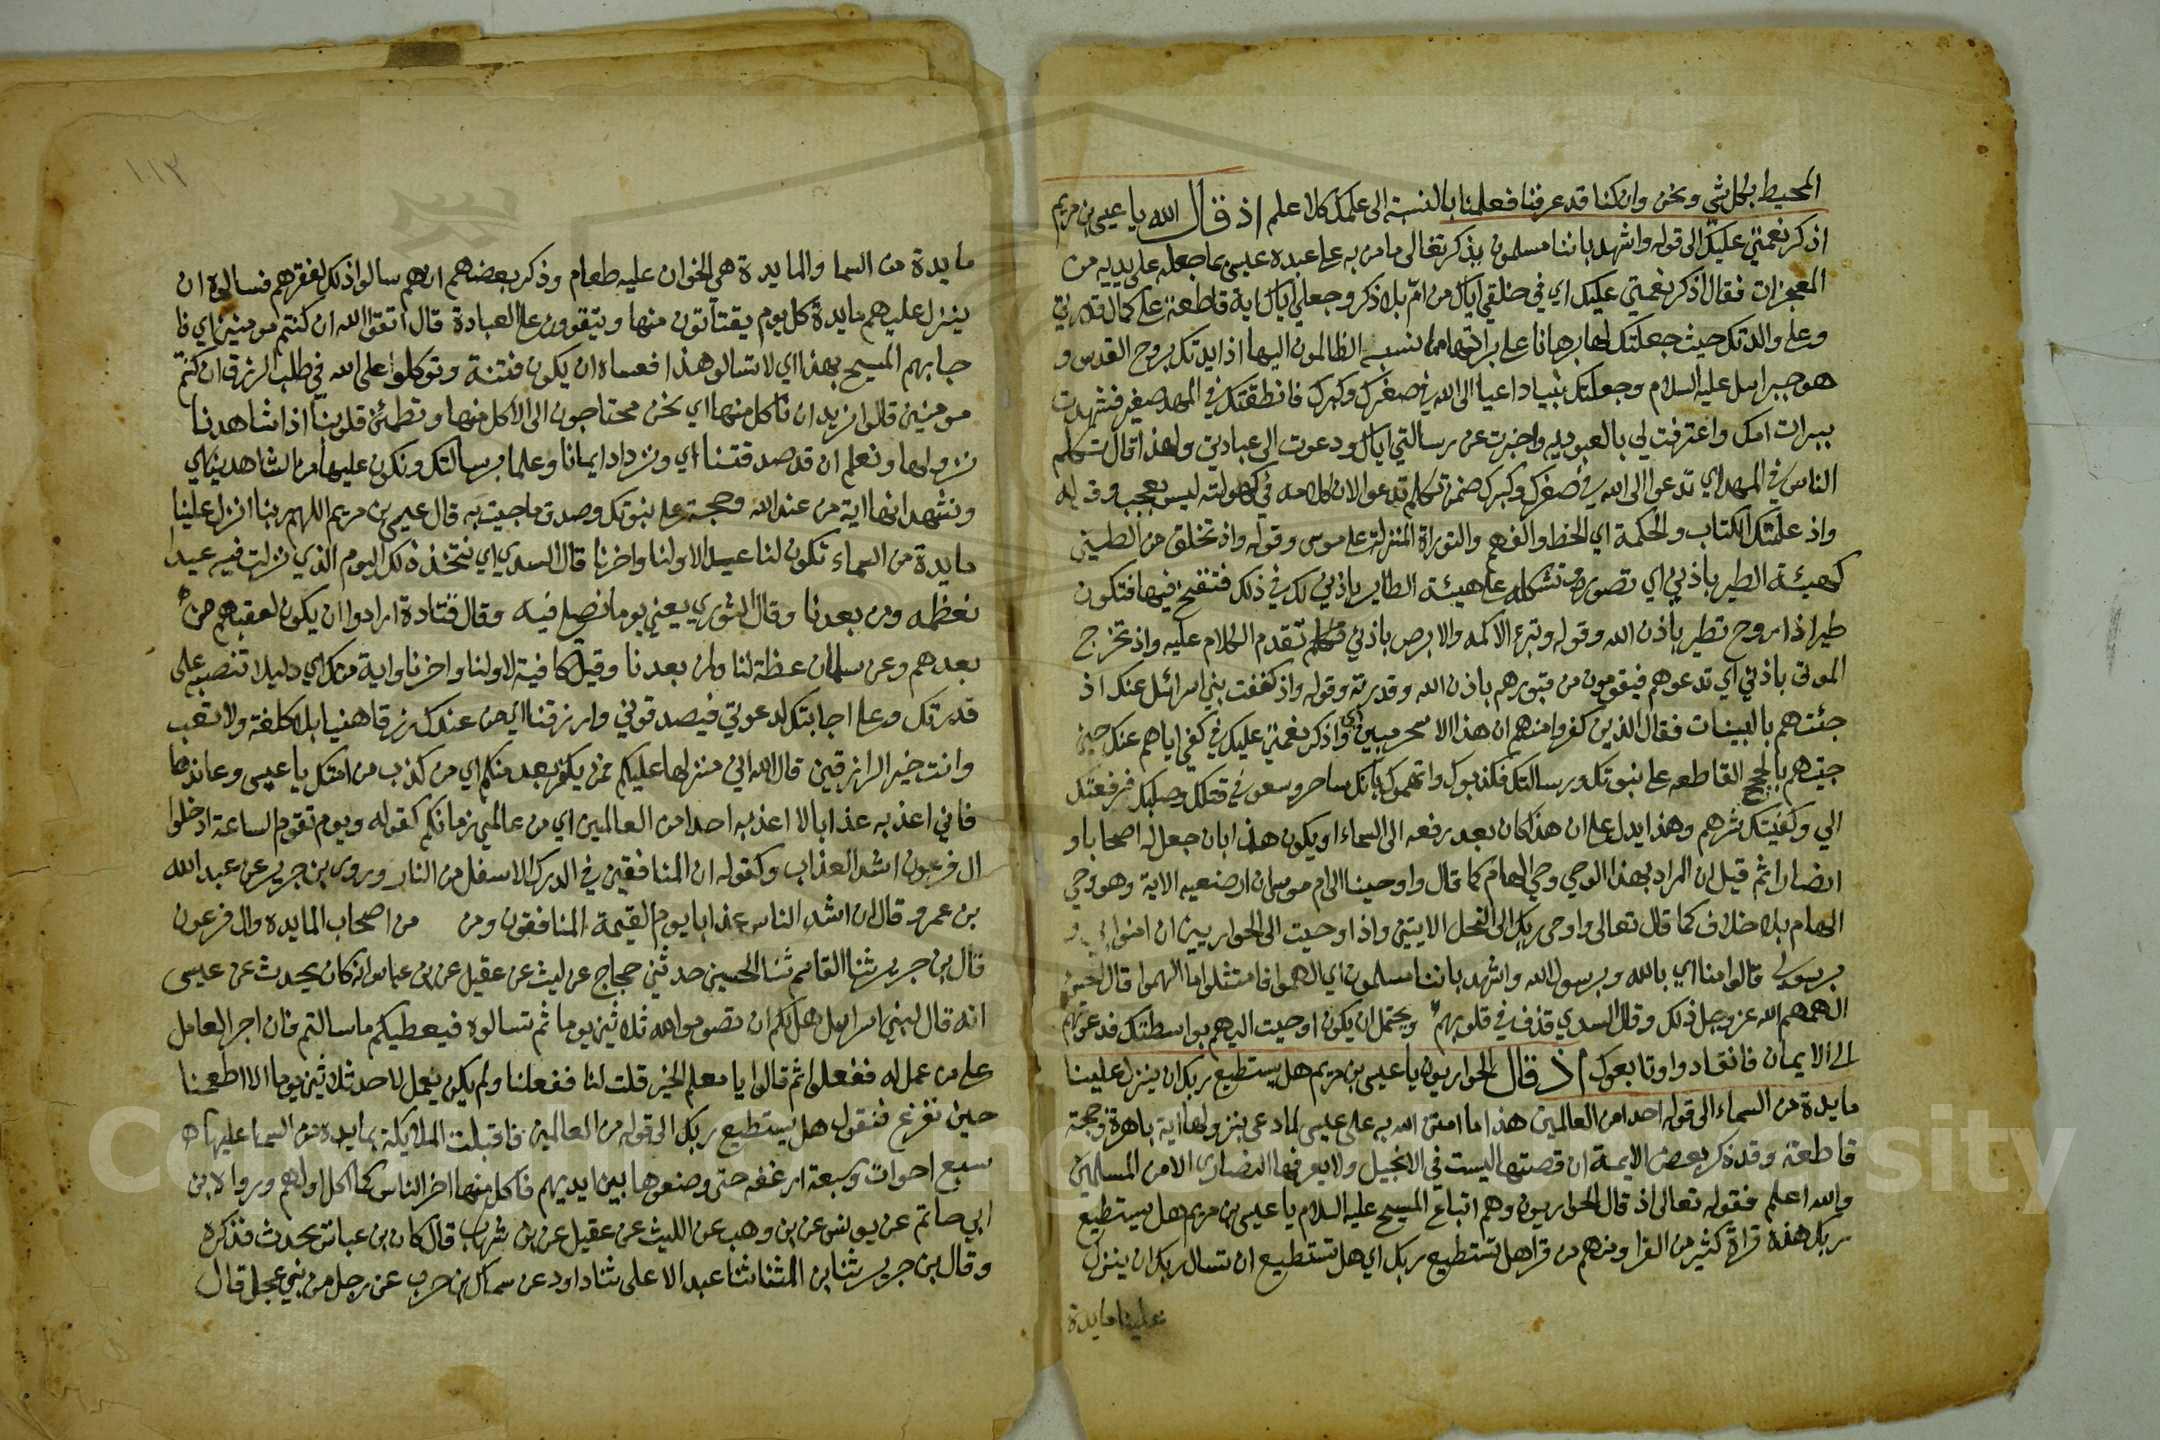 المحيط بكل شي ونحن وان كنا قد عرفنا فعلمنا بالنسبة الى علمك كلا علم اذ قال الله يا عيسى بن مريم
اذكر نعمتي عليك الى قوله واشهد باننا مسلمون يذكر تعالى ما من به على عبده عيسى بما جعله على يديه من
المعجزات فقال اذكر نعمتي عليك اي في خلقي اياك من ام بلا ذكر وجعلي اياك اية قاطعة على كمال قدرتي
وعلى والدتك حيث جعلتك لها برهانا على براتها مما نسبه الظالمون اليها اذ ايدتك بروح القدس و
هو جبرايل عليه السلام وجعلتك نبيا داعيا الى الله في صغرك وكبرك فانطقتك في المهد صغير فشهدت
ببرات امك واعترفت لي بالعبوديه واخبرت عن رسالتي اياك ودعوت الى عبادتي ولهذا قال تكلم
الناس في المهد اي تدعوا الى الله في صغرك وكبرك ضمن تكلم تدعوا لان كلامه في كهولته ليس بعجب وقوله
واذ علمتك الكتاب والحكمة اي الخط والفهم والتوراة المنزلة على موسى وقوله واذ تخلق من الطين
كهيئة الطير باذني اي تصوره وتشكله على هيئة الطاير باذني لك في ذلك فتنفخ فيها فتكون
طيرا ذا روح تطير باذن الله وقوله وتبرء الاكمه والابرص باذني تقدم الكلام عليه واذ تخرج
الموتى باذني اي تدعوهم فيقومون من قبورهم باذن الله وقدرته وقوله واذ كففت بني اسرائل عنك اذ
جئتهم بالبينات فقال الذين كفروا منهم ان هذا الا سحر مبين اي واذكر نعمتي عليك في كفي اياهم عنك حين
جيتهم بالحجج القاطعه على نبوتك ورسالتك فكذبوك واتهموك بانك ساحر وسعوا في قتلك وصلبك فرفعتك
الي وكفيتك شرهم وهذا يدل على ان هذا كان بعد رفعه الى السماء او يكون هذا بان جعل له اصحابا و
انصارا ثم قيل ان المراد بهذا الوحي وحي الهام كما قال واوحينا الى ام موسى ان ارضعيه الاية وهو وحي
الهام بلا خلاف كما قال تعالى واوحى ربك الى النحل الايتين واذ اوحيت الى الحواريين ان امنوا بي و
برسولي قالوا امنا اي بالله وبرسول الله واشهد باننا مسلمون اي الهموا فامتثلوا ما الهموا قال الحسن
الهمهم الله عز وجل ذلك وقال السدي قذف في قلوبهم ويحتمل ان يكون اوحيت اليهم بواسطتك فدعوتهم
الى الايمان فانقادوا وتابعوك اذ قال الحواريون يا عيسى بن مريم هل يستطيع ربك ان ينزل علينا
مايدة من السماء الى قوله احدا من العالمين هذا ما امتن الله به على عيسى لما دعى بنزولها اية باهرة وحجة
قاطعة وقد ذكر بعض الايمة ان قصتها ليست في الانجيل ولا يعرفها النصارى الا من المسلمين
والله اعلم فقوله تعالى اذ قال الحواريون وهم اتباع المسيح عليه السلام يا عيسى بن مريم هل يستطيع
ربك هذه قراة كثير من القرا ومنهم من قرا هل تستطيع ربك اي هل تستطيع ان تسال ربك ان ينزل
علينا مايدة
١١٣
مايدة من السما والمايدة هي الخوان عليه طعام وذكر بعضهم انهم سالوا ذلك لفقرهم فسالوه ان
ينزل عليهم مايدة كل يوم يقتاتون منها ويتقوون على العبادة قال اتقوا الله ان كنتم مومنين اي فا
جابهم المسيح بهذا اي لا تسالوا هذا فعساه ان يكون فتنة وتوكلوا على الله في طلب الرزق ان كنتم
مومنين قالوا نريد ان ناكل منها اي نحن محتاجون الى الاكل منها وتطمئن قلوبنا اذا شاهدنا
نزولها ونعلم ان قد صدقتنا اي ونزداد ايمانا وعلما برسالتك ونكون عليها من الشاهدين اي
ونشهد انها اية من عند الله وحجة على نبوتك وصدق ما جيت به قال عيسى بن مريم اللهم ربنا انزل علينا
مايدة من السماء تكون لنا عيدا لاولنا واخرنا قال السدي اي نتخذ ذلك اليوم الذي نزلت فيه عيدا
نعظمه ومن بعدنا وقال الثوري يعني يوما نصلي فيه وقال قتادة ارادوا ان يكون لعقبهم من
بعدهم وعن سلمان عظة لنا ولمن بعدنا وقيل كافية لاولنا واخرنا واية منك اي دليلا تنصبه على
قدرتك وعلى اجابتك لدعوتي فيصدقوني وارزقنا اي من عندك رزقا هنيا بلا كلفة ولا تعب
وانت خير الرازقين قال الله اني منزلها عليكم فمن يكفر بعد منكم اي من كذب من امتك يا عيسى وعاندها
فاني اعذبه عذابا لا اعذبه احدا من العالمين اي من عالمي زمانكم كقوله ويوم تقوم الساعة ادخلوا
ال فرعون اشد العذاب وكقوله ان المنافقين في الدرك الاسفل من النار وروى بن جرير عن عبد الله
بن عمرو قال ان اشد الناس عذابا يوم القيمة المنافقون ومن من اصحاب المايده وال فرعون
قال بن جرير ثنا القاسم ثنا الحسين حدثني حجاج عن ليث عن عقيل عن بن عباس انه كان يحدث عن عيسى
انه قال لبني اسرايل هل لكم ان تصوموا لله ثلاثين يوما ثم تسالوه فيعطيكم ما سالتم فان اجر العامل
على من عمل له ففعلوا ثم قالوا يا معلم الخير قلت لنا ففعلنا ولم يكن نعمل لاحد ثلاثين يوما الا اطعمنا
حين نفرغ فنقول هل يستطيع ربك الى قوله من العالمين فاقبلت الملايكة بمايدة من السما عليها
سبع احوات وسبعة ارغفه حتى وضعوها بين ايديهم فاكل منها اخر الناس كما اكل اولهم ورواه بن
ابي حاتم عن يونس عن بن وهب عن الليث عن عقيل عن بن شهاب قال كان بن عباس يحدث فذكره
وقال بن جرير ثنا بن المثنا ثنا عبد الاعلى ثنا داود عن سماك بن حرب عن رجل من بني عجل قال